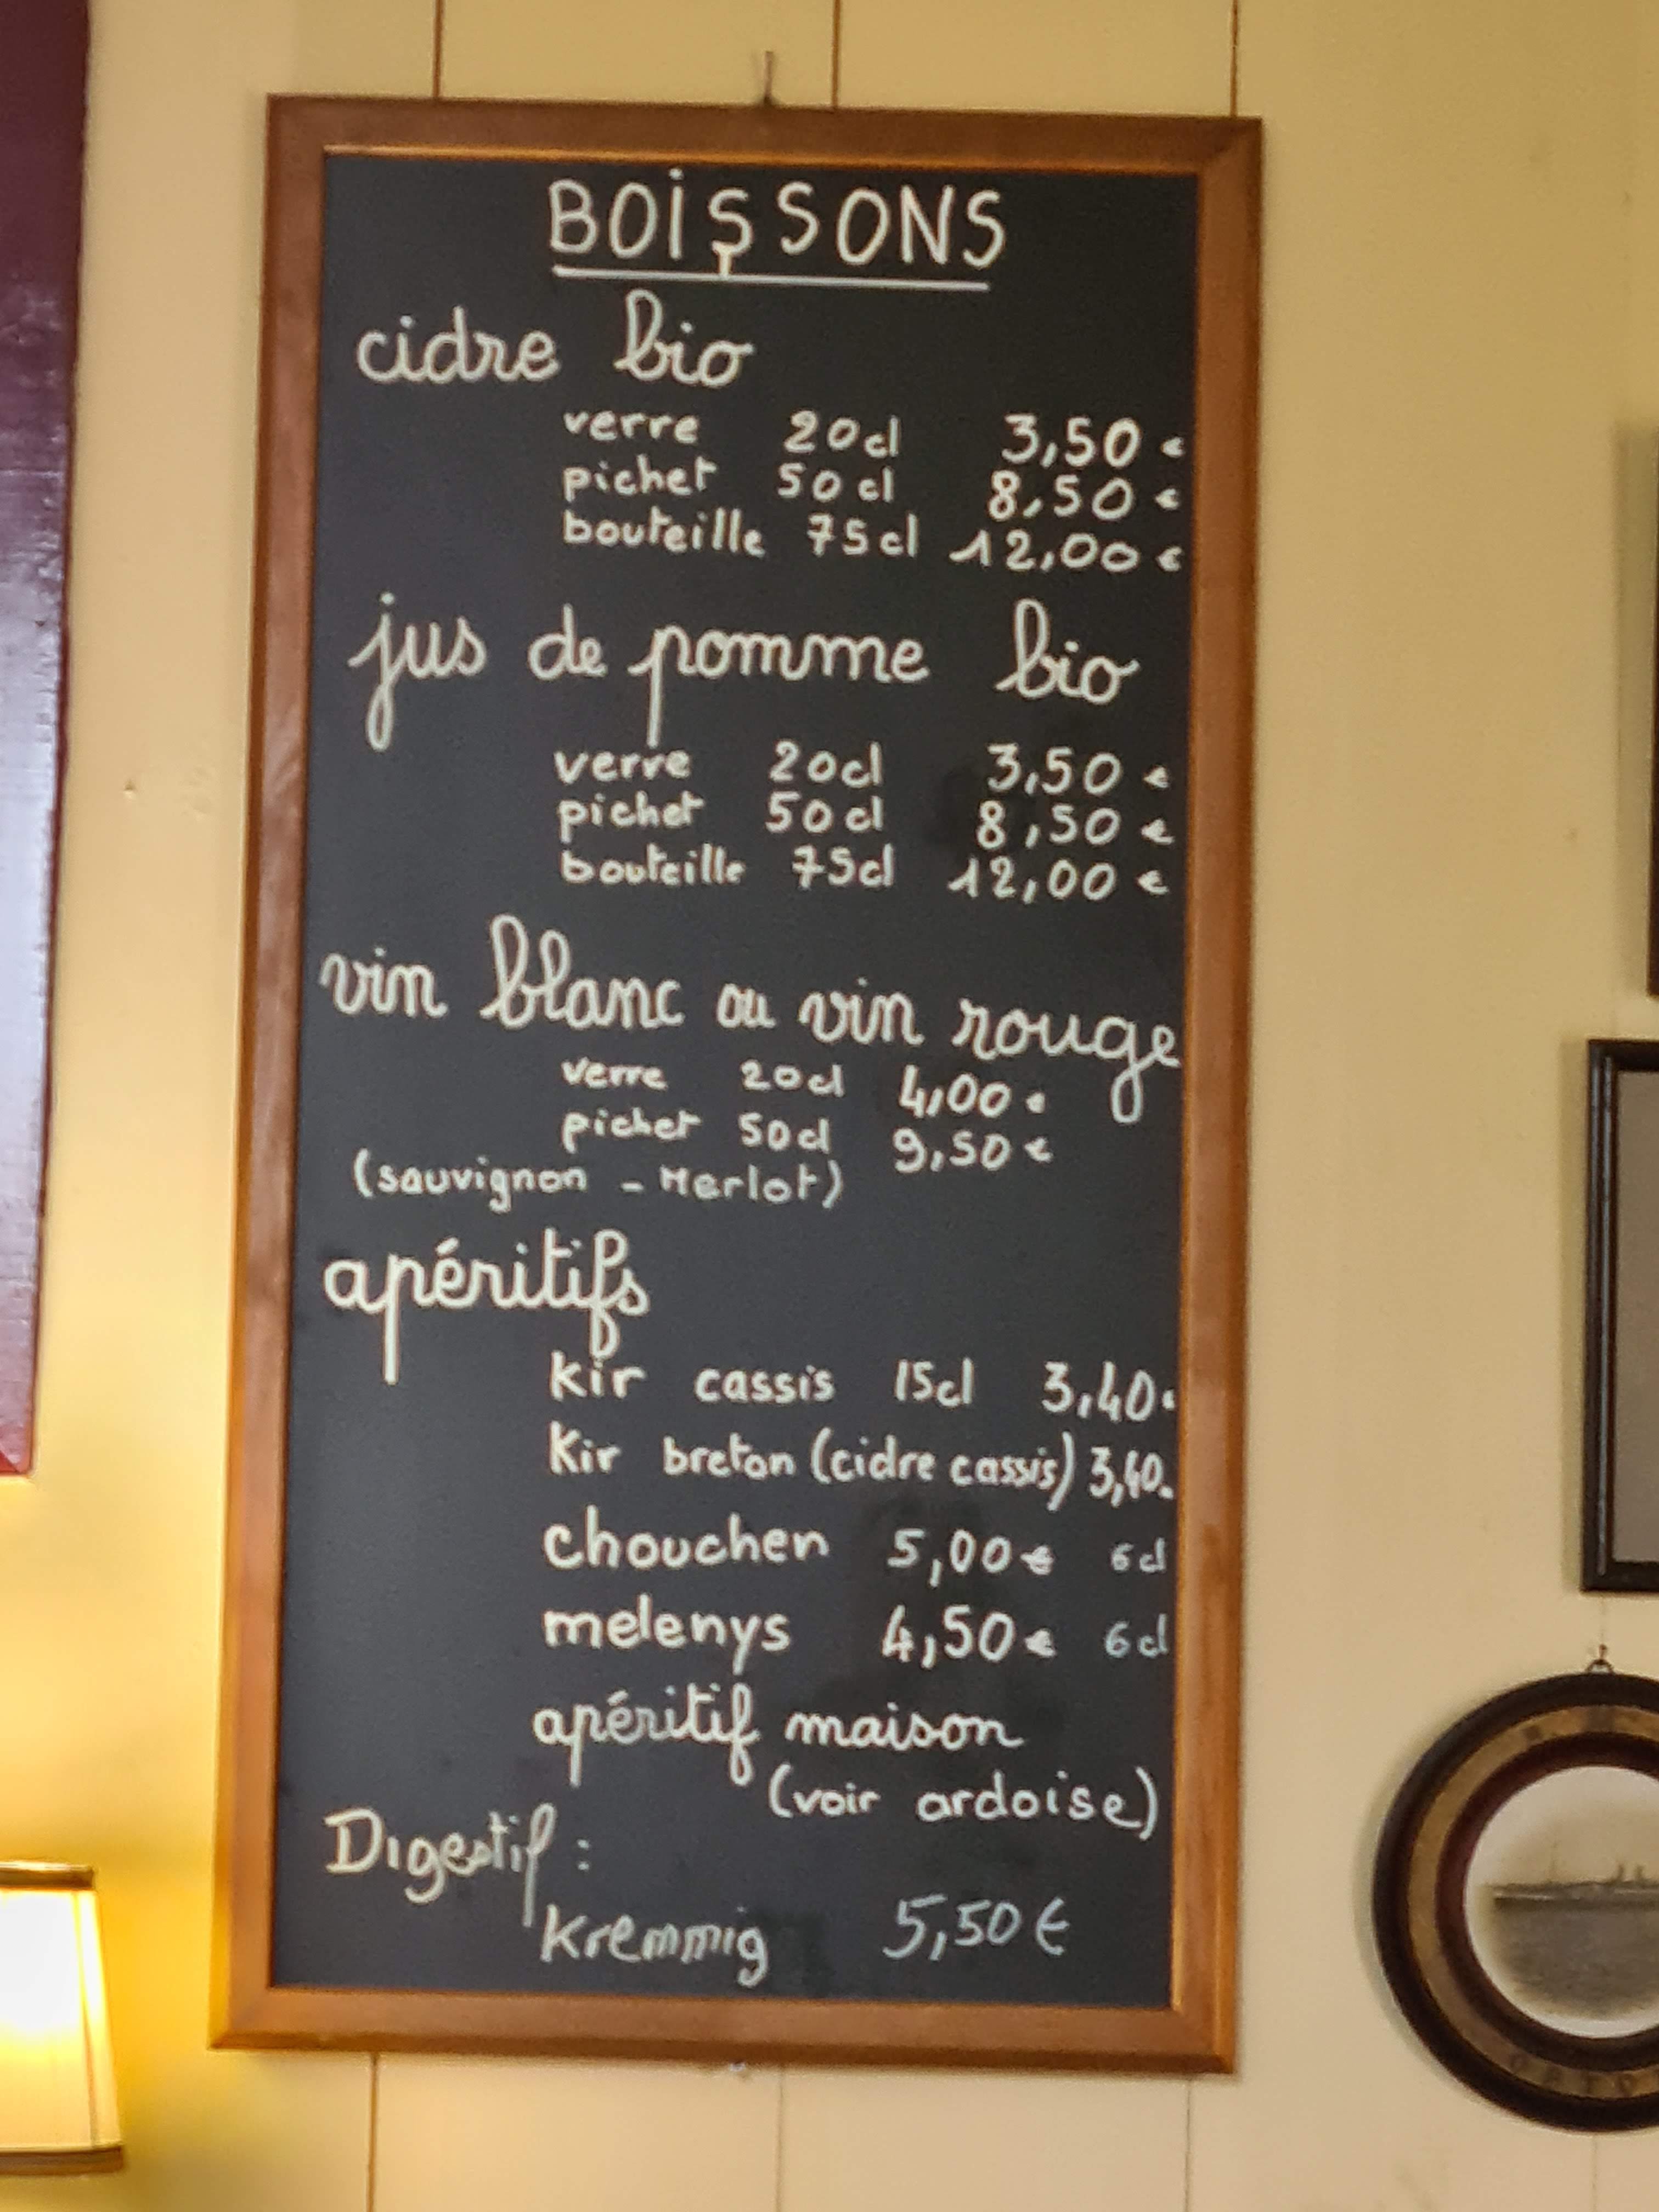 BOiSSONS
cidre bio
verre 20cl 3,50 €
pichet 50cl 8,50 €
bouteille 75cl 12,00 €
jus de pomme bio
verre 20cl 3,50 €
pichet 50cl 8,50 €
bouteille 75cl 12,00 €
vin blanc ou vin rouge
verre 20cl 4,00 €
pichet 50cl 9,50 €
(sauvignon - Merlot)
apéritifs
kir cassis 15cl 3,40€
Kir breton (cidre cassis) 3,40€
chouchen 5,00€ 6cl
melenys 4,50€ 6cl
apéritif maison
(voir ardoise)
Digestif :
Kremmig 5,50€